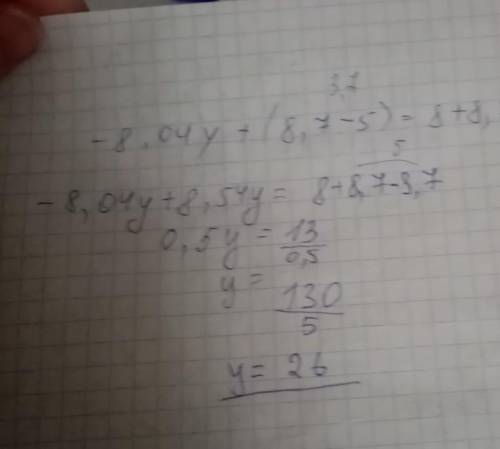 3,7
-8,04y + (8,7-5) = 8+8,
5
-8,04y+8,54y = 8+8,7-3,7
0,5y = 13/0,5
y = 130/5
y = 26